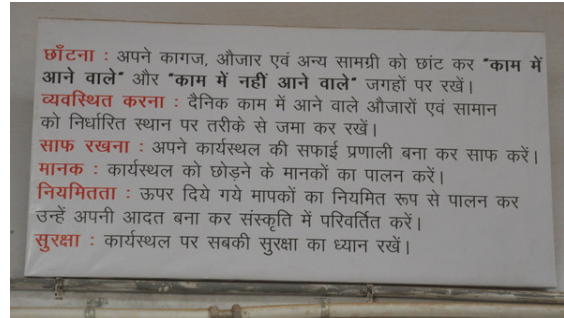 छाँटना : अपने कागज, औजार एवं अन्य सामग्री को छांट कर "काम में
आने वाले" और "काम में नहीं आने वाले" जगहों पर रखें।
व्यवस्थित करना : दैनिक काम में आने वाले औजारों एवं सामान
को निर्धारित स्थान पर तरीके से जमा कर रखें।
साफ रखना : अपने कार्यस्थल की सफाई प्रणाली बना कर साफ करें।
मानक : कार्यस्थल को छोड़ने के मानकों का पालन करें।
नियमितता : ऊपर दिये गये मापकों का नियमित रूप से पालन कर
उन्हें अपनी आदत बना कर संस्कृति में परिवर्तित करें।
सुरक्षा : कार्यस्थल पर सबकी सुरक्षा का ध्यान रखें।